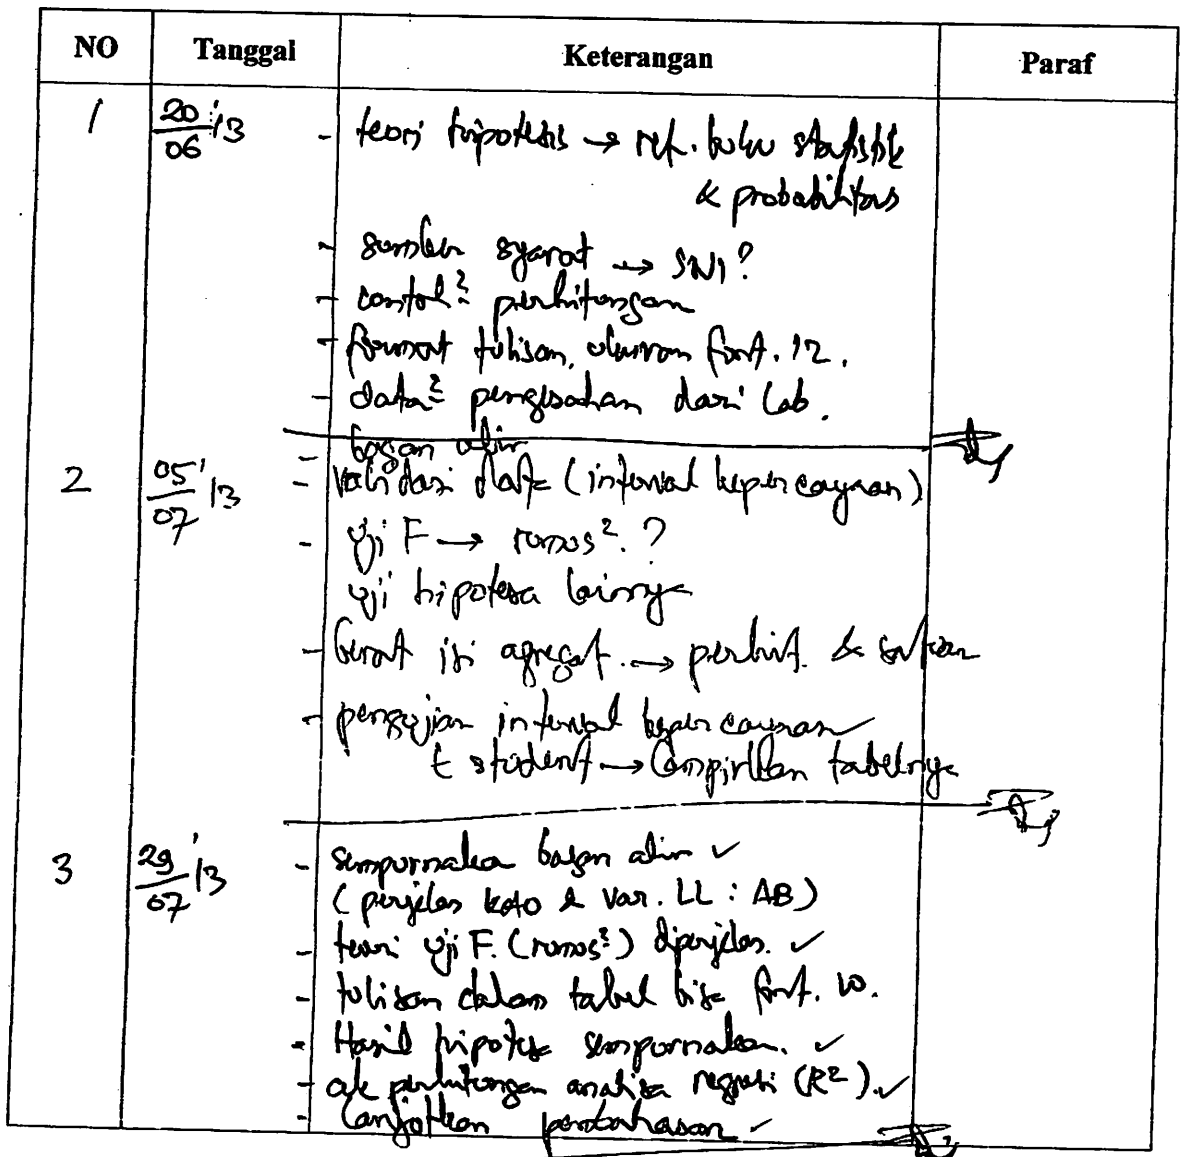 NO Tanggal Keterangan Paraf
1 20/06 '13 - teori hipotesis → ref. buku statistik
& probabilitas
- sumber syarat → SNI ?
- contoh² perhitungan
- format tulisan, ukuran font. 12.
- data² pengesahan dari Lab.
- bagan alir
2 05/07 '13 - validasi data (interval kepercayaan)
- uji F → rumus². ?
uji hipotesa lainnya
- berat isi agregat. → perhit. & satuan
- pengujian interval kepercayaan
t student → lampirkan tabelnya
3 29/07 '13 - sempurnakan bagan alir ✓
(perjelas & var. LL : AB)
- teori uji F. (rumus²) diperjelas. ✓
- tulisan dalam tabel bisa font. 10.
- Hasil hipotesa sempurnakan. ✓
- cek perhitungan analisa regresi (R²). ✓
- lanjutkan pembahasan ✓